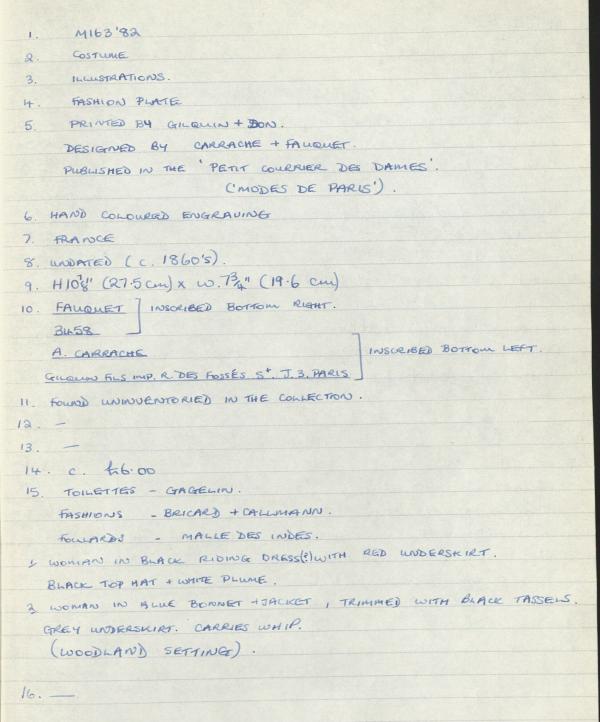 1. M163'82
2. COSTUME
3. ILLUSTRATIONS.
4. FASHION PLATE
5. PRINTED BY GILQUIN + DON.
DESIGNED BY CARRACHE + FAUQUET.
PUBLISHED IN THE 'PETIT COURRIER DES DAMES'.
('MODES DE PARIS').
6. HAND COLOURED ENGRAVING
7. FRANCE
8. UNDATED (C. 1860'S).
9. H10⅞" (27.5cm) x W. 7¾" (19.6 cm)
10. FAUQUET ] INSCRIBED BOTTOM RIGHT.
3458
A. CARRACHE ] INSCRIBED BOTTOM LEFT.
GILQUIN FILS IMP. R. DES FOSSÉS St. J. 3. PARIS
11. FOUND UNINVENTORIED IN THE COLLECTION.
12. —
13. —
14. c. £6.00
15. TOILETTES - GAGELIN.
FASHIONS - BRICARD + CALLMANN.
FOULARDS - MALLE DES INDES.
1, WOMAN IN BLACK RIDING DRESS(?) WITH RED UNDERSKIRT.
BLACK TOP HAT + WHITE PLUME.
2, WOMAN IN BLUE BONNET + JACKET, TRIMMED WITH BLACK TASSELS.
GREY UNDERSKIRT. CARRIES WHIP.
(WOODLAND SETTING).
16. —